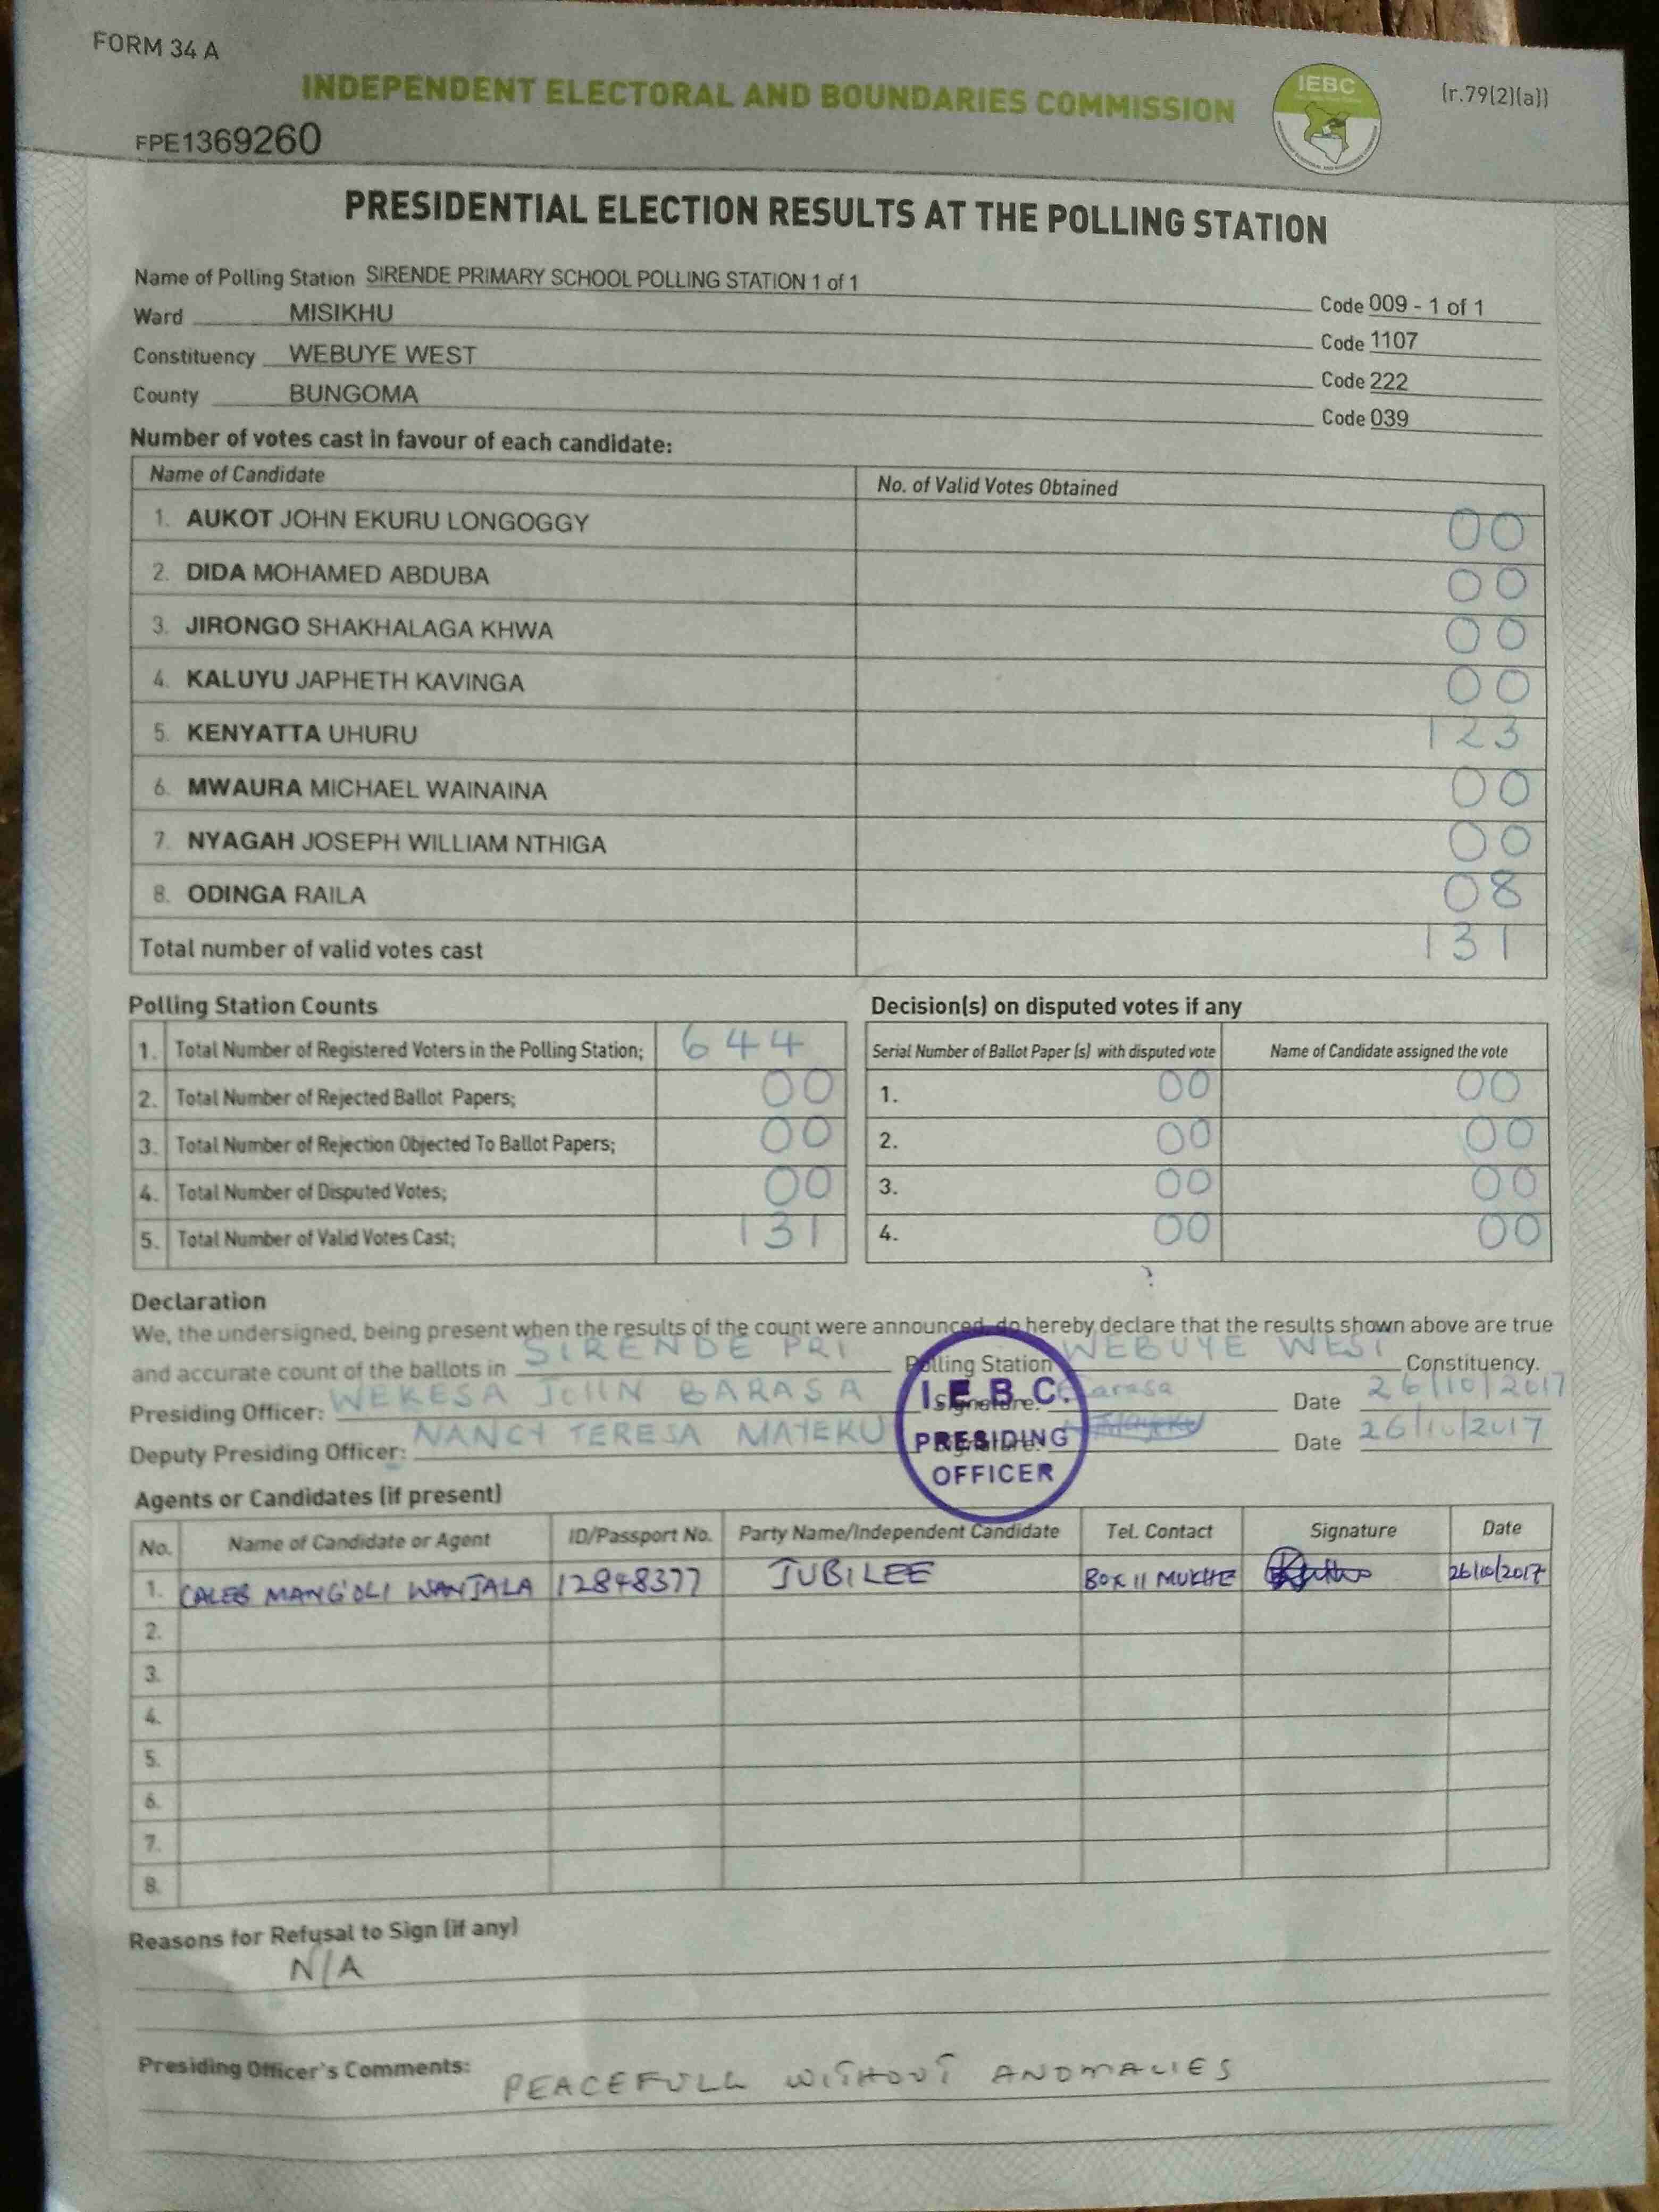 FORM 34 A
INDEPENDENT ELECTORAL AND BOUNDARIES COMMISSION
IEBC
(r.79(2)(a))
FPE1369260
PRESIDENTIAL ELECTION RESULTS AT THE POLLING STATION
Name of Polling Station SIRENDE PRIMARY SCHOOL POLLING STATION 1 of 1 Code 009 - 1 of 1
Ward MISIKHU Code 1107
Constituency WEBUYE WEST Code 222
County BUNGOMA Code 039
Number of votes cast in favour of each candidate:
Name of Candidate No. of Valid Votes Obtained
1. AUKOT JOHN EKURU LONGOGGY 00
2. DIDA MOHAMED ABDUBA 00
3. JIRONGO SHAKHALAGA KHWA 00
4. KALUYU JAPHETH KAVINGA 00
5. KENYATTA UHURU 123
6. MWAURA MICHAEL WAINAINA 00
7. NYAGAH JOSEPH WILLIAM NTHIGA 00
8. ODINGA RAILA 08
Total number of valid votes cast 131
Polling Station Counts
1. Total Number of Registered Voters in the Polling Station; 644
2. Total Number of Rejected Ballot Papers; 00
3. Total Number of Rejection Objected To Ballot Papers; 00
4. Total Number of Disputed Votes; 00
5. Total Number of Valid Votes Cast; 131
Decision(s) on disputed votes if any
Serial Number of Ballot Paper (s) with disputed vote Name of Candidate assigned the vote
1. 00 00
2. 00 00
3. 00 00
4. 00 00
Declaration
We, the undersigned, being present when the results of the count were announced, do hereby declare that the results shown above are true
and accurate count of the ballots in SIRENDE PRI Polling Station WEBUYE WEST Constituency.
Presiding Officer: WEKESA JOHN BARASA Signature: Barasa Date 26/10/2017
Deputy Presiding Officer: NANCY TERESA MAYEKU Signature: Mayeku Date 26/10/2017
I.E.B.C.
PRESIDING
OFFICER
Agents or Candidates (if present)
No. Name of Candidate or Agent ID/Passport No. Party Name/Independent Candidate Tel. Contact Signature Date
1. CALEB MANG'OLI WANJALA 12848377 JUBILEE BOX 11 MUKHE 26/10/2017
2.
3.
4.
5.
6.
7.
8.
Reasons for Refusal to Sign (if any)
N/A
Presiding Officer's Comments: PEACEFULL WITHOUT ANOMALIES